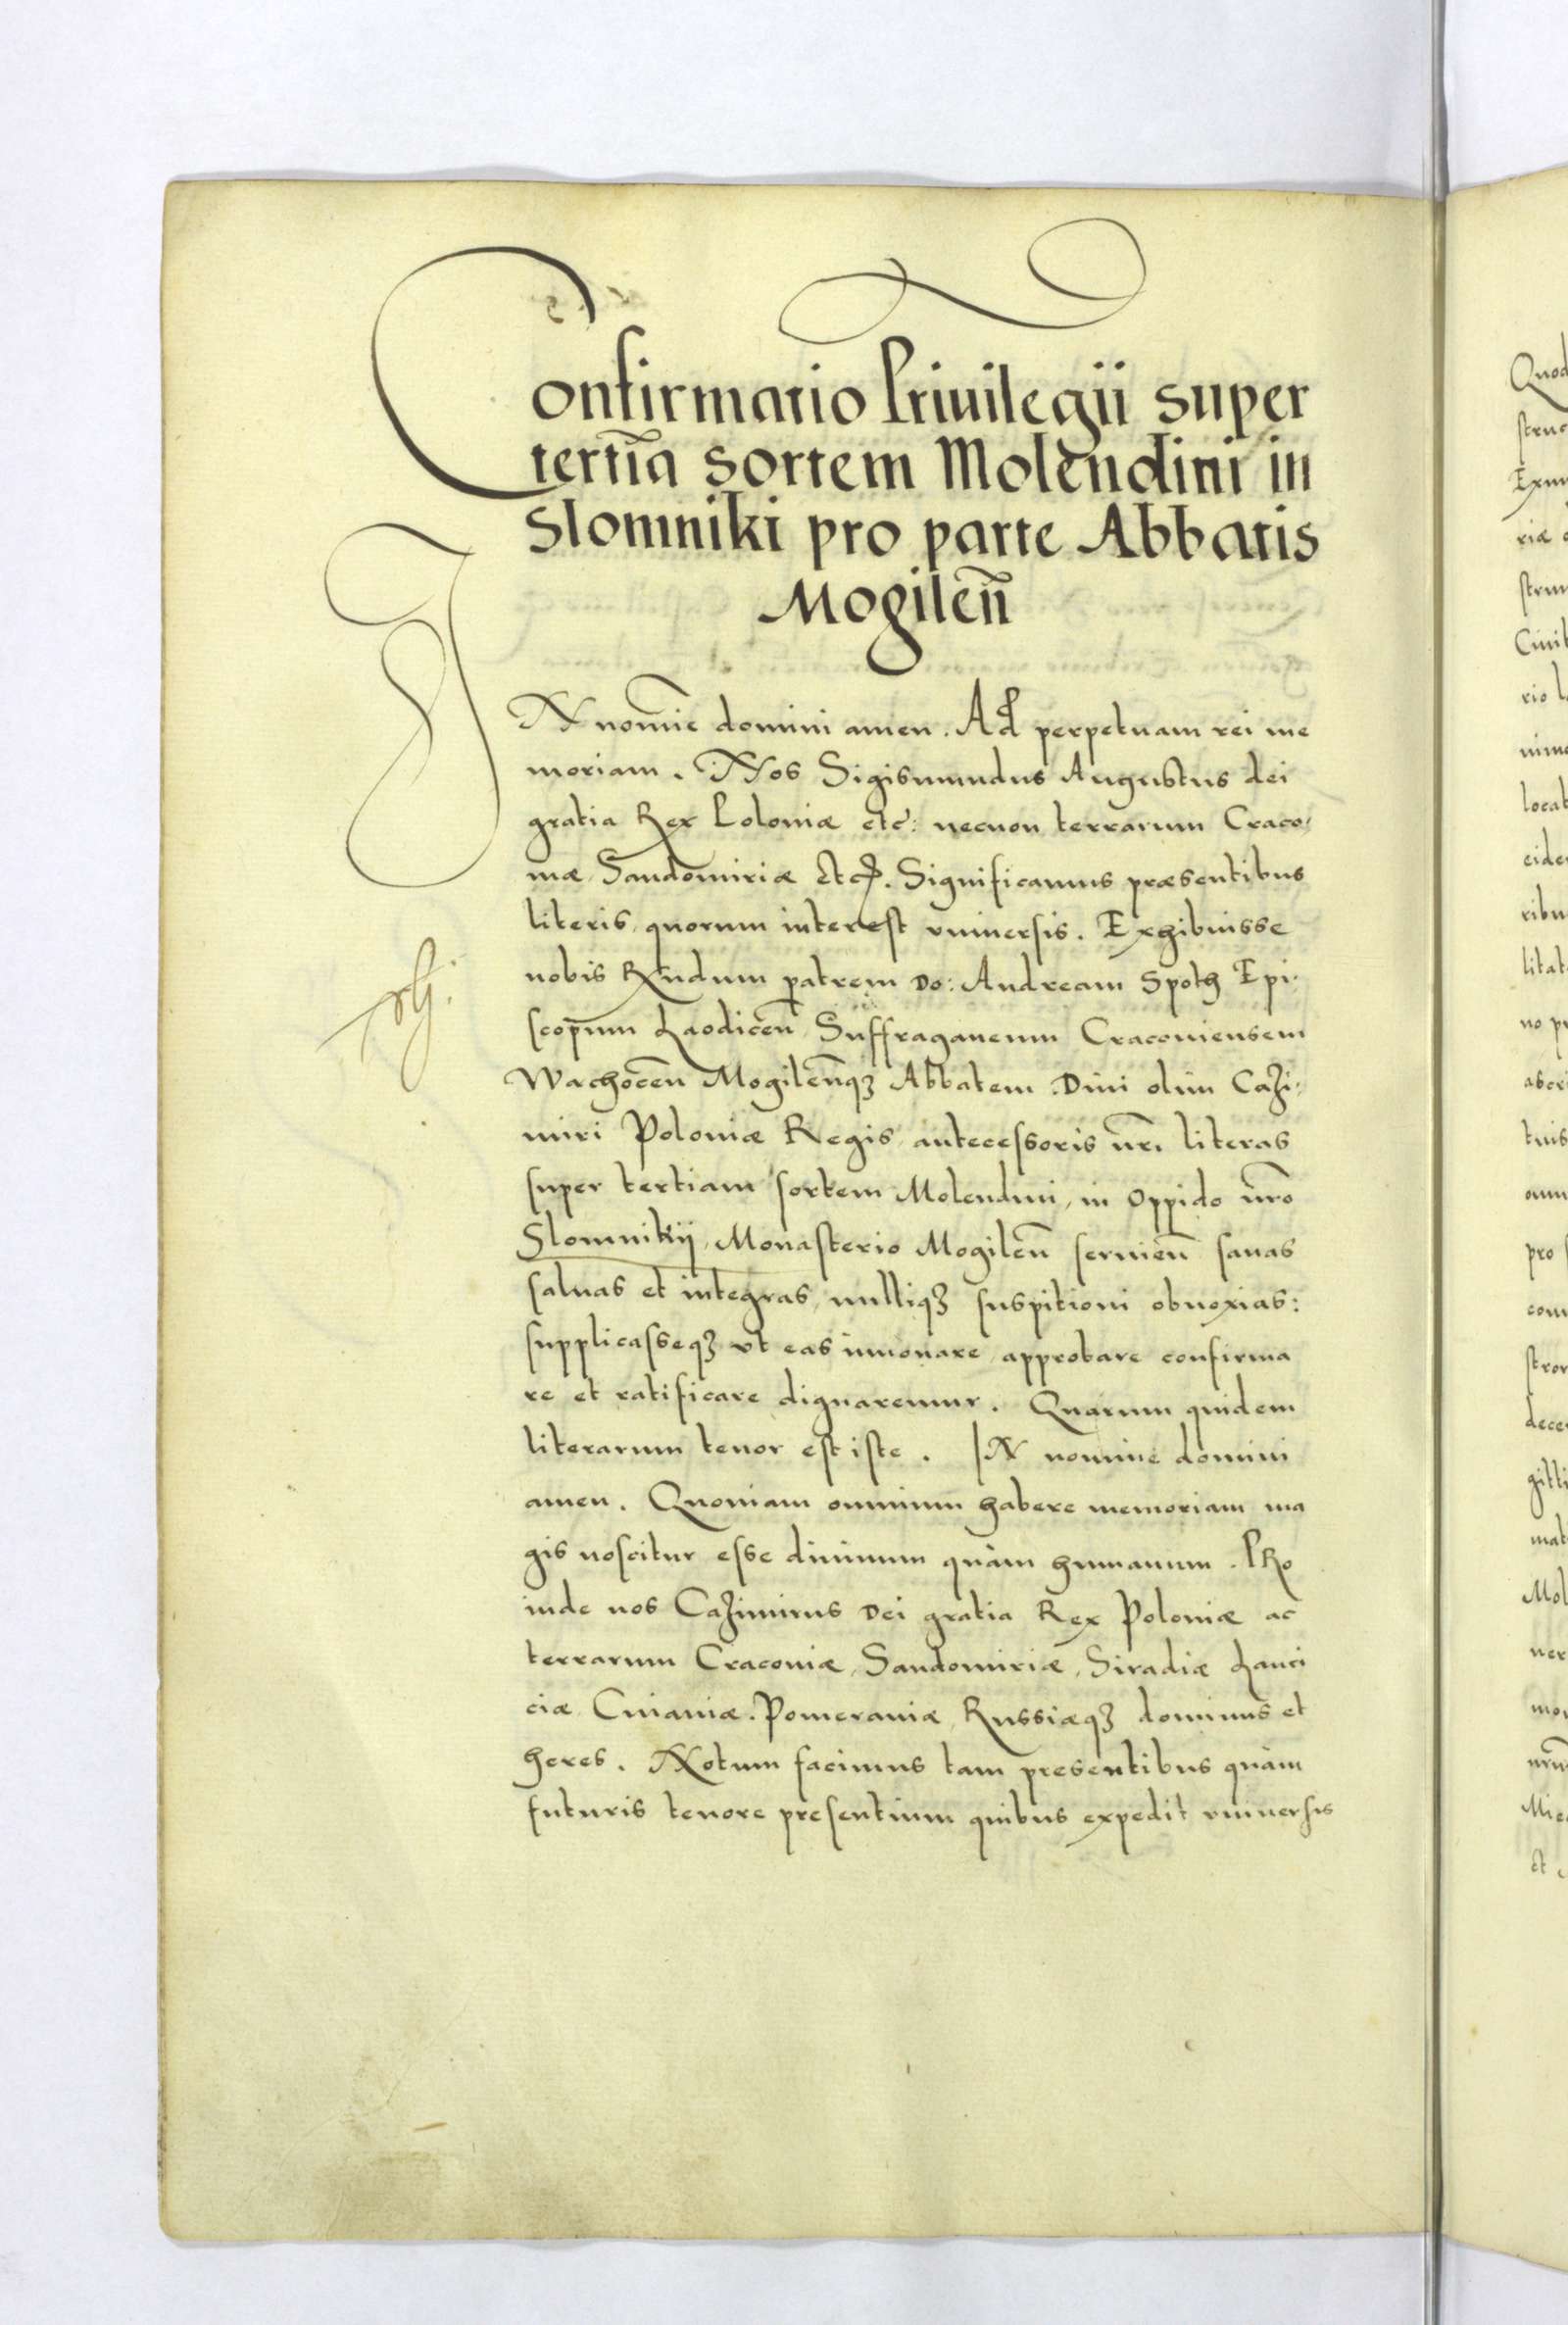 Confirmatio Priuilegii super
tertiã sortem Molendini in
Slomniki pro parte Abbatis
Mogileñ
IN nomĩe domini amen. Ad perpetuam rei me
moriam. Nos Sigismundus Augustus dei
gratia Rex Poloniæ etc: necnon terrarum Craco⸗
niæ, Sandomiriæ etc. Significamus præsentibus
literis, quorum interest vniuersis. Exhibuisse
nobis Rñdum patrem Do: Andream Spoth Epi⸗
scopum Laodiceñ Suffraganeum Craconiensem
Wachoceñ Mogileñqꝫ Abbatem. Diui olim Cazi⸗
miri Poloniæ Regis antecessoris nr̃i literas
super tertiam sortem Molendini, in Oppido nr̃o
Slomnikÿ, Monasterio Mogileñ seruieñ sanas
saluas et integras, nulliqꝫ suspitioni obnoxias:
supplicasseqꝫ vt eas innouare, approbare confirma
re et ratificare dignaremur. Quarum quidem
literarum tenor est iste. IN nomine domini
amen. Quoniam omnium habere memoriam ma
gis noscitur esse diuinum quàm humanum. PRo
inde nos Cazimirus Dei gratia Rex Poloniæ ac
terrarum Craconiæ, Sandomiriæ, Siradiæ Lanci
ciæ Cuiauiæ. Pomeraniæ, Russiæqꝫ dominus et
heres. Notum facimus tam presentibus quàm
futuris tenore presentium quibus expedit vniuersis